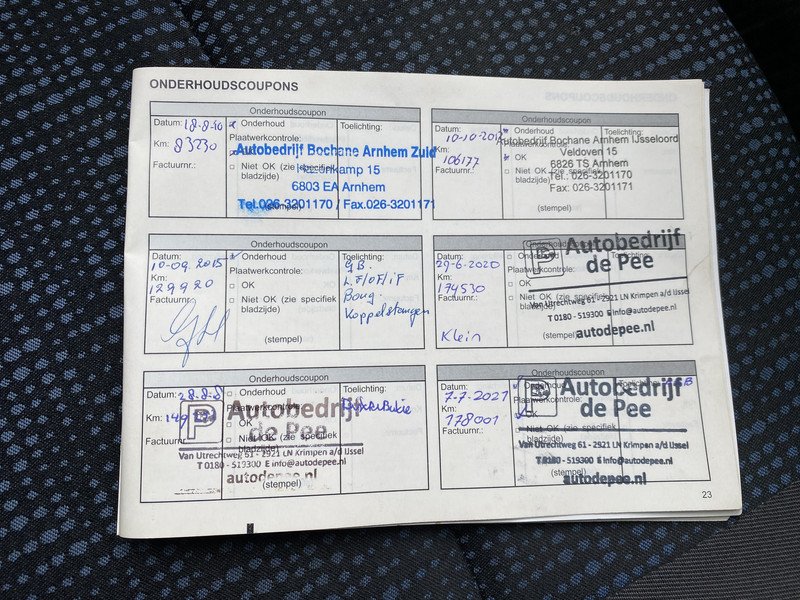 ONDERHOUDSCOUPONS
Onderhoudscoupon
Datum: 18-8-10
Onderhoud
Toelichting:
Km: 83230
Plaatwerkcontrole:
Factuurnr.:
Niet OK (zie specifiek
bladzijde)
Autobedrijf Bochane Arnhem Zuid
15
6803 EA Arnhem
Tel.026-3201170 / Fax.026-3201171
(stempel)
Onderhoudscoupon
Datum:
10-10-2012
Onderhoud
Toelichting:
Km:
106177
Plaatwerkcontrole:
OK
Factuurnr.:
Niet OK (zie specifiek
bladzijde)
Autobedrijf Bochane Arnhem IJsseloord
Veldoven 15
6826 TS Arnhem
Tel.: 026-3201170
Fax: 026-3201171
(stempel)
Onderhoudscoupon
Datum:
10-09-2015
Onderhoud
Toelichting:
Km:
129920
Plaatwerkcontrole:
OK
Factuurnr.:
Niet OK (zie specifiek
bladzijde)
GB.
L.F/OF/iF
Boug.
Koppelstangen
(stempel)
Onderhoudscoupon
Datum:
29-6-2020
Km:
174530
Plaatwerkcontrole:
OK
Factuurnr.:
Niet OK (zie specifiek
bladzijde)
Klein
P Autobedrijf
de Pee
Van Utrechtweg 61 - 2921 LN Krimpen a/d IJssel
T 0180 - 519300 E info@autodepee.nl
autodepee.nl
(stempel)
Onderhoudscoupon
Datum:
Onderhoud
Toelichting:
Km:
Plaatwerkcontrole:
OK
Factuurnr.:
Niet OK (zie specifiek
bladzijde)
P Autobedrijf
de Pee
Van Utrechtweg 61 - 2921 LN Krimpen a/d IJssel
T 0180 - 519300 E info@autodepee.nl
autodepee.nl
(stempel)
Onderhoudscoupon
Datum:
7-7-2021
Onderhoud
Km:
178001
Plaatwerkcontrole:
OK
Factuurnr.:
Niet OK (zie specifiek
bladzijde)
P Autobedrijf
de Pee
Van Utrechtweg 61 - 2921 LN Krimpen a/d IJssel
T 0180 - 519300 E info@autodepee.nl
autodepee.nl
(stempel)
23